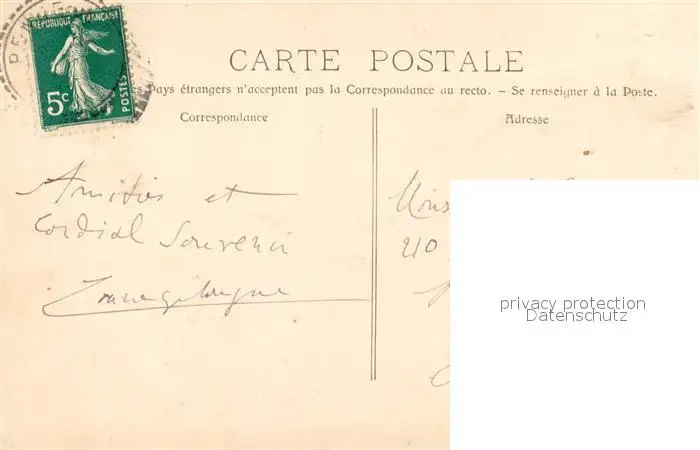 RÉPUBLIQUE FRANÇAISE
5c POSTES
CARTE POSTALE
es Pays étrangers n'acceptent pas la Correspondance au recto. - Se renseigner à la Poste.
Correspondance
Adresse
Amitiés et
Cordial Souvenir
privacy protection
Datenschutz